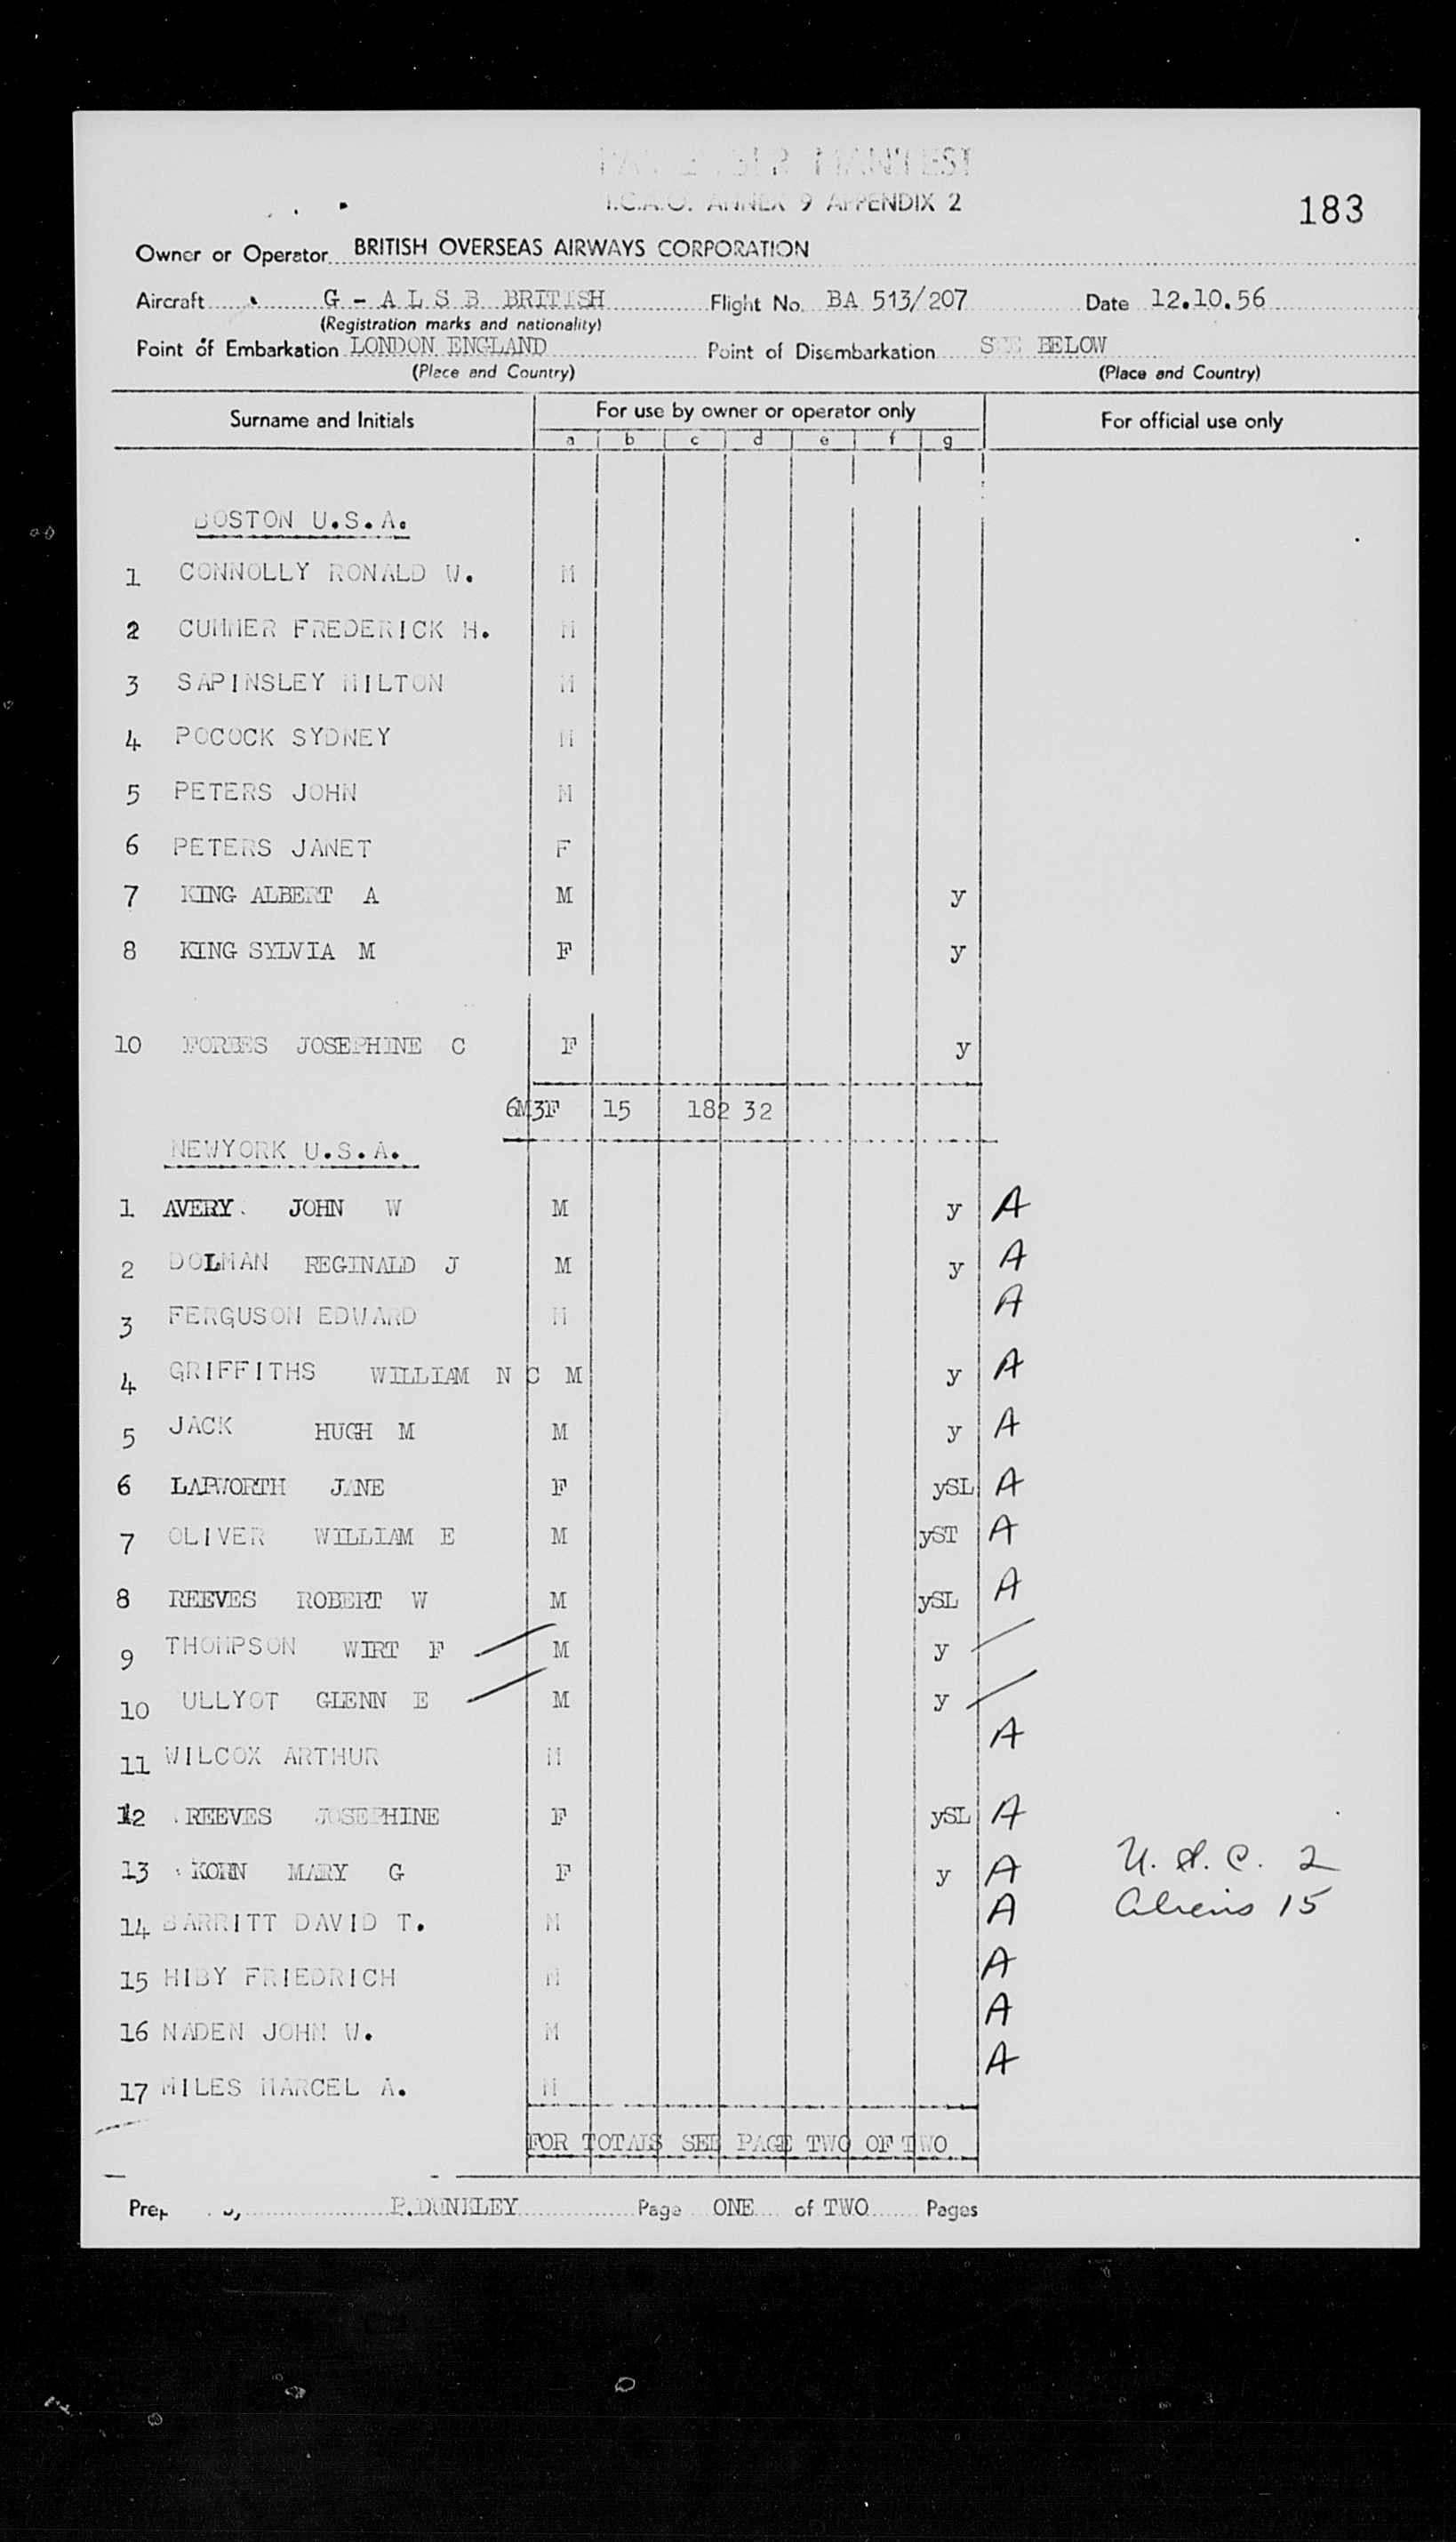 PASSENGER MANIFEST
I.C.A.O. ANNEX 9 APPENDIX 2
183
Owner or Operator BRITISH OVERSEAS AIRWAYS CORPORATION
Aircraft G - A L S B BRITISH Flight No. BA 513/207 Date 12.10.56
(Registration marks and nationality)
Point of Embarkation LONDON ENGLAND Point of Disembarkation SEE BELOW
(Place and Country) (Place and Country)
Surname and Initials For use by owner or operator only For official use only
a b c d e f g
BOSTON U.S.A.
1 CONNOLLY RONALD W. M
2 CUMMER FREDERICK H. M
3 SAPINSLEY MILTON M
4 POCOCK SYDNEY M
5 PETERS JOHN M
6 PETERS JANET F
7 KING ALBERT A M y
8 KING SYLVIA M F y
10 FORBES JOSEPHINE C F y
6M3F 15 182 32
NEWYORK U.S.A.
1 AVERY JOHN W M y A
2 DOLMAN REGINALD J M y A
3 FERGUSON EDWARD M A
4 GRIFFITHS WILLIAM N C M y A
5 JACK HUGH M M y A
6 LAPWORTH JANE F ySL A
7 OLIVER WILLIAM E M yST A
8 REEVES ROBERT W M ySL A
9 THOMPSON WIRT F M y
10 ULLYOT GLENN E M y
11 WILCOX ARTHUR M A
12 REEVES JOSEPHINE F ySL A
13 KORN MARY G F y A U.S.C. 2
14 BARRITT DAVID T. M A Aliens 15
15 HIBY FRIEDRICH M A
16 NADEN JOHN W. M A
17 MILES MARCEL A. M A
FOR TOTALS SEE PAGE TWO OF TWO
P.DUNKLEY Page ONE of TWO Pages